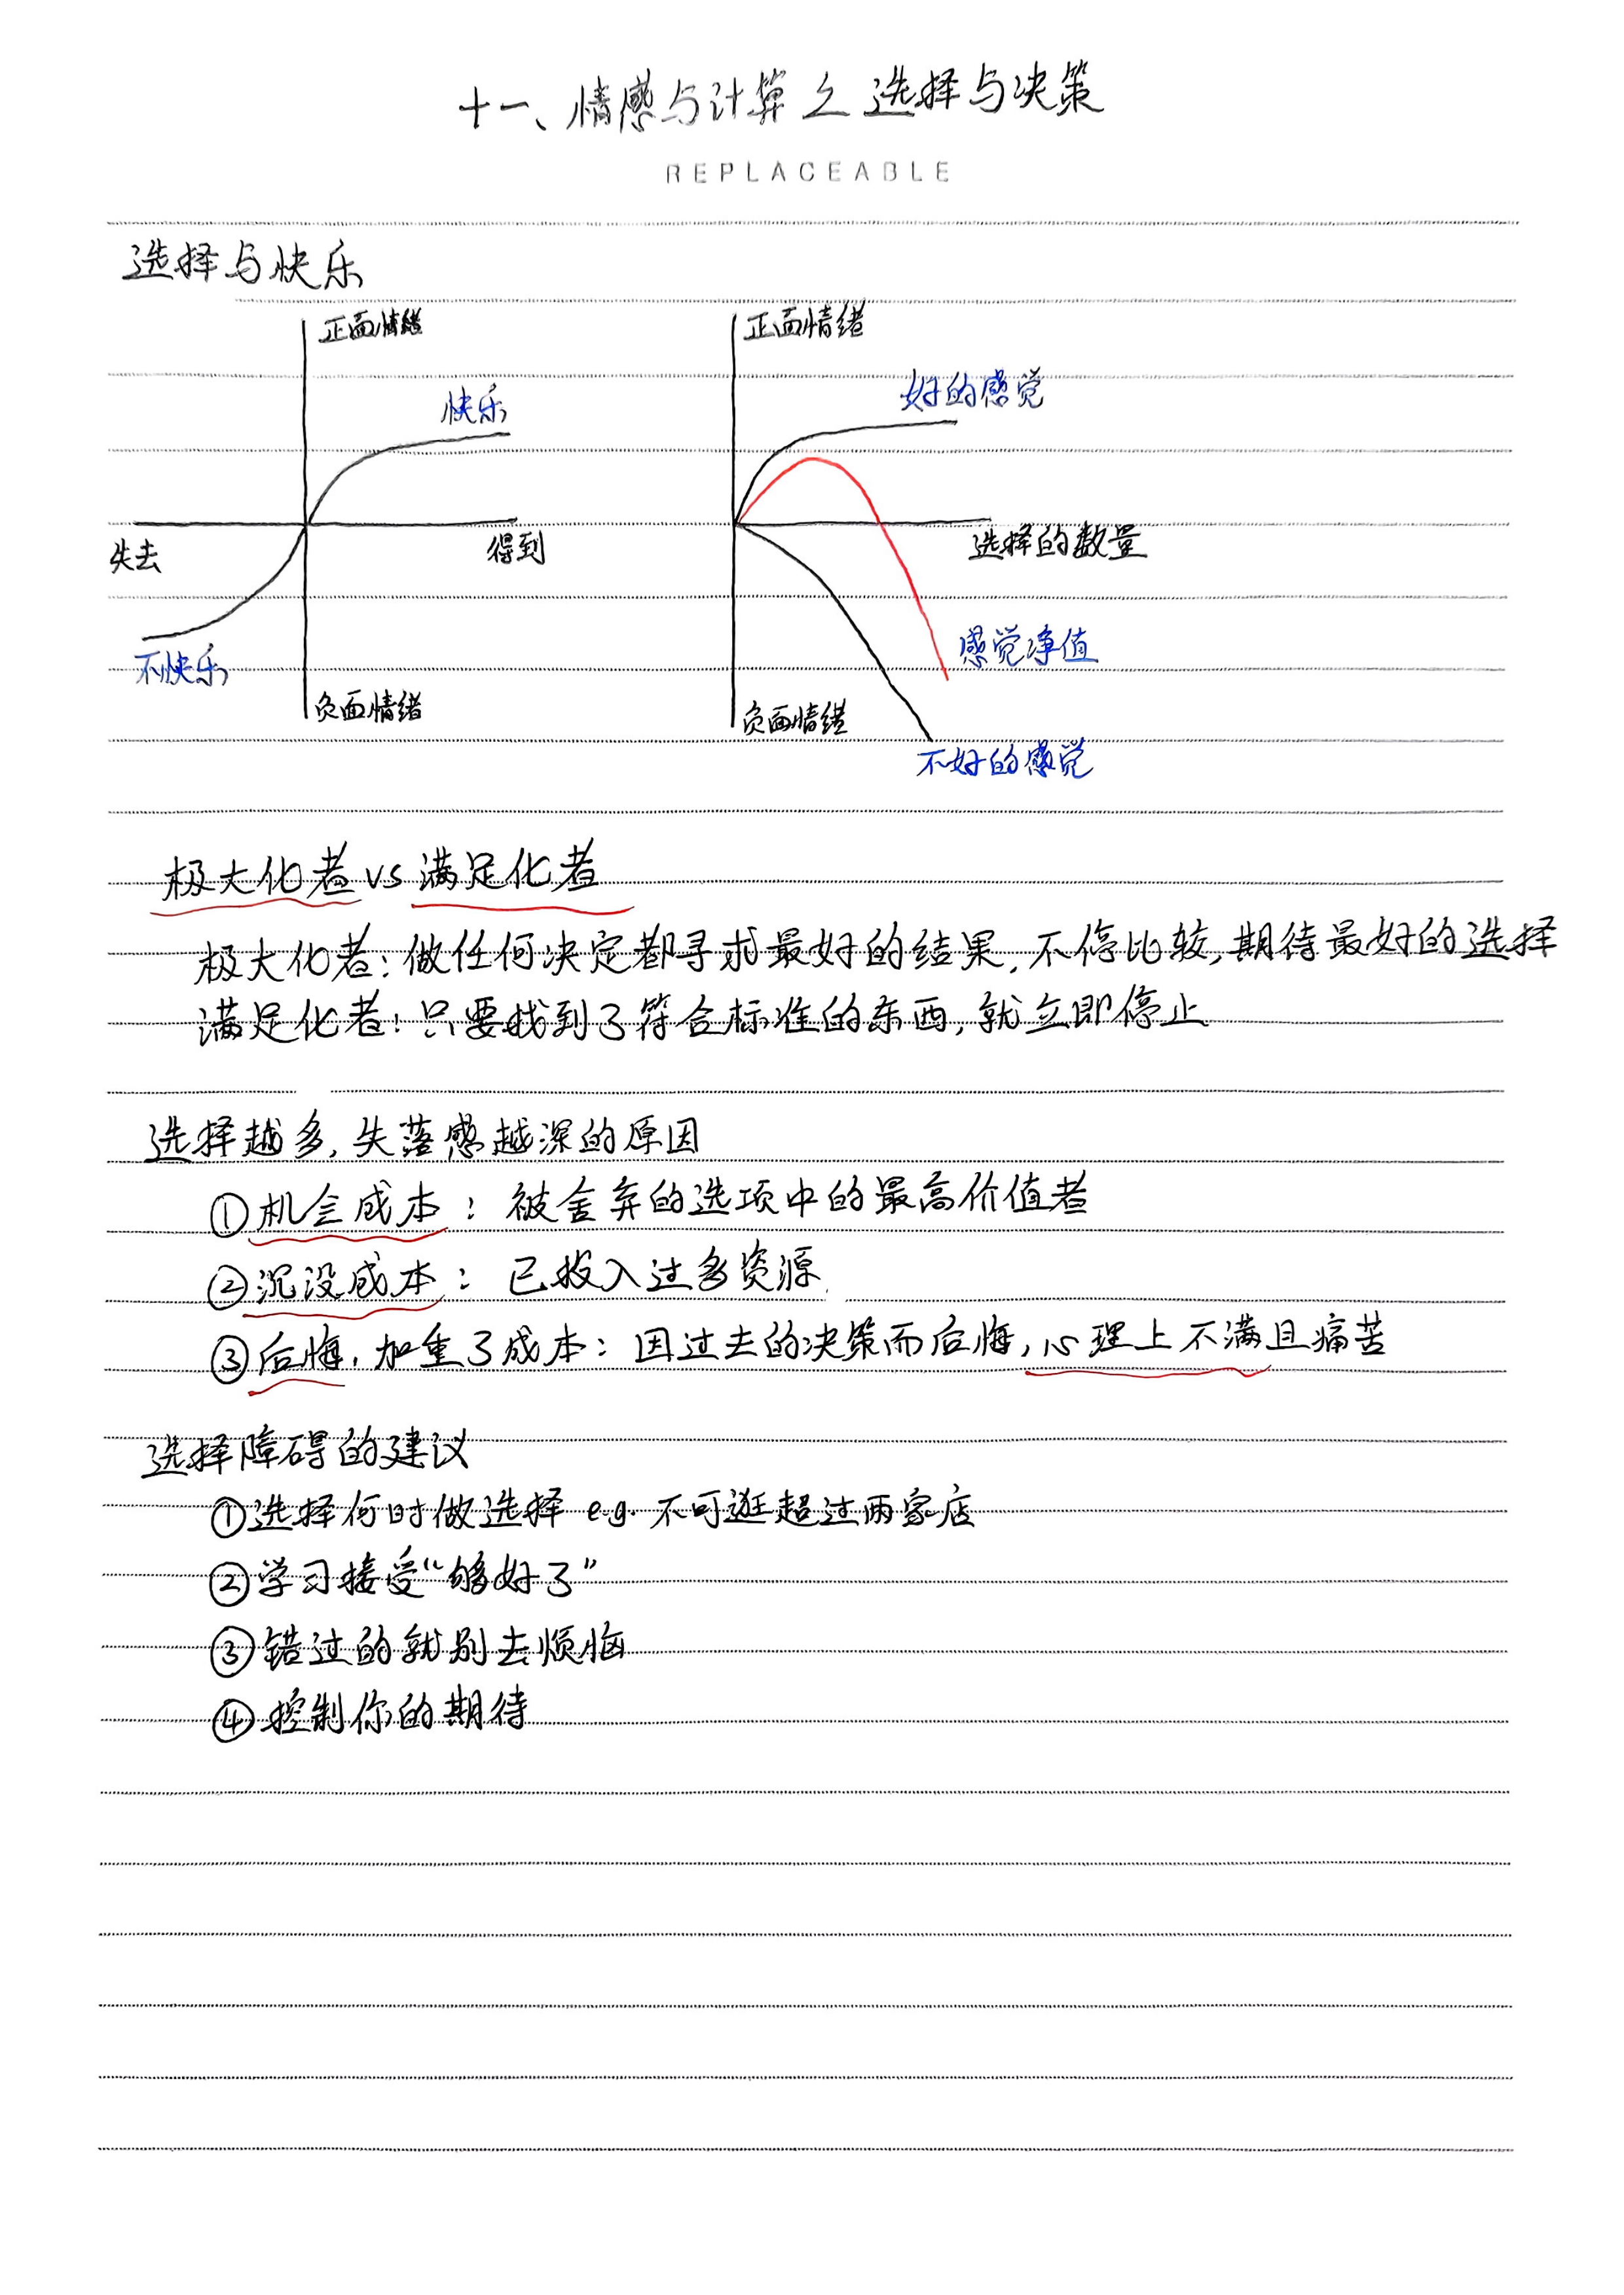 十一、情感与计算之选择与决策
REPLACEABLE
选择与快乐
正面情绪
正面情绪
快乐
好的感觉
失去
得到
选择的数量
不快乐
感觉净值
负面情绪
负面情绪
不好的感觉
极大化者 vs 满足化者
极大化者：做任何决定都寻求最好的结果，不停比较，期待最好的选择
满足化者：只要找到了符合标准的东西，就立即停止
选择越多，失落感越深的原因
①机会成本：被舍弃的选项中的最高价值者
②沉没成本：已投入过多资源
③后悔，加重了成本：因过去的决策而后悔，心理上不满且痛苦
选择障碍的建议
①选择何时做选择 e.g. 不可逛超过两家店
②学习接受“够好了”
③错过的就别去烦恼
④控制你的期待